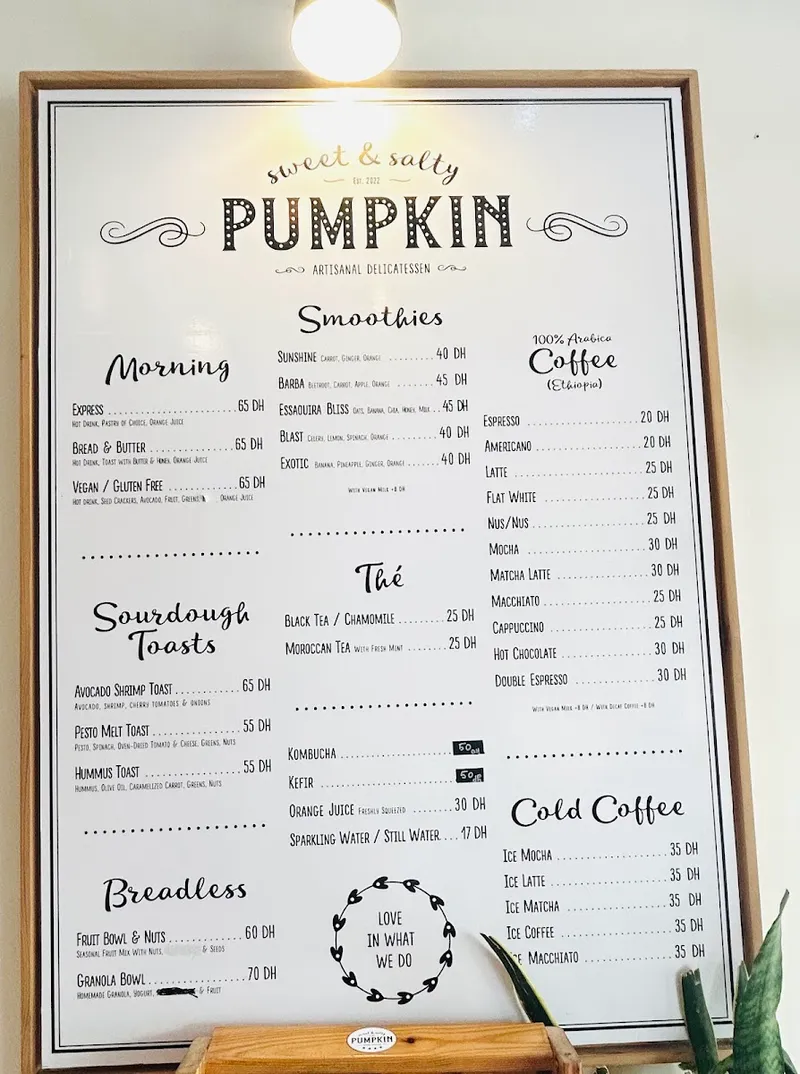 sweet & salty
Est. 2022
PUMPKIN
ARTISANAL DELICATESSEN
Morning
EXPRESS ........................ 65 DH
HOT DRINK, PASTRY OF CHOICE, ORANGE JUICE
BREAD & BUTTER ................ 65 DH
HOT DRINK, TOAST WITH BUTTER & HONEY, ORANGE JUICE
VEGAN / GLUTEN FREE ............ 65 DH
HOT DRINK, SEED CRACKERS, AVOCADO, FRUIT, GREENS, ORANGE JUICE
Sourdough
Toasts
AVOCADO SHRIMP TOAST ............ 65 DH
AVOCADO, SHRIMP, CHERRY TOMATOES & ONIONS
PESTO MELT TOAST ................ 55 DH
PESTO, SPINACH, OVEN-DRIED TOMATO & CHEESE, GREENS, NUTS
HUMMUS TOAST .................. 55 DH
HUMMUS, OLIVE OIL, CARAMELIZED CARROT, GREENS, NUTS
Breadless
FRUIT BOWL & NUTS .............. 60 DH
SEASONAL FRUIT MIX WITH NUTS, & SEEDS
GRANOLA BOWL .................. 70 DH
HOMEMADE GRANOLA, YOGURT, & FRUIT
Smoothies
SUNSHINE CARROT, GINGER, ORANGE .......... 40 DH
BARBA BEETROOT, CARROT, APPLE, ORANGE ........ 45 DH
ESSAOUIRA BLISS OATS, BANANA, CHIA, HONEY, MILK ... 45 DH
BLAST CELERY, LEMON, SPINACH, ORANGE .......... 40 DH
EXOTIC BANANA, PINEAPPLE, GINGER, ORANGE ....... 40 DH
WITH VEGAN MILK +8 DH
Thé
BLACK TEA / CHAMOMILE ......... 25 DH
MOROCCAN TEA WITH FRESH MINT ........ 25 DH
KOMBUCHA ...................... 50 DH
KEFIR .......................... 50 DH
ORANGE JUICE FRESHLY SQUEEZED ........ 30 DH
SPARKLING WATER / STILL WATER.... 17 DH
LOVE
IN WHAT
WE DO
100% Arabica
Coffee
(Ethiopia)
ESPRESSO ...................... 20 DH
AMERICANO ..................... 20 DH
LATTE .......................... 25 DH
FLAT WHITE ..................... 25 DH
NUS/NUS ....................... 25 DH
MOCHA ........................ 30 DH
MATCHA LATTE .................. 30 DH
MACCHIATO ..................... 25 DH
CAPPUCCINO .................... 25 DH
HOT CHOCOLATE ................. 30 DH
DOUBLE ESPRESSO ............... 30 DH
WITH VEGAN MILK +8 DH / WITH DECAF COFFEE +8 DH
Cold Coffee
ICE MOCHA ..................... 35 DH
ICE LATTE ...................... 35 DH
ICE MATCHA .................... 35 DH
ICE COFFEE ..................... 35 DH
MACCHIATO .................. 35 DH
PUMPKIN